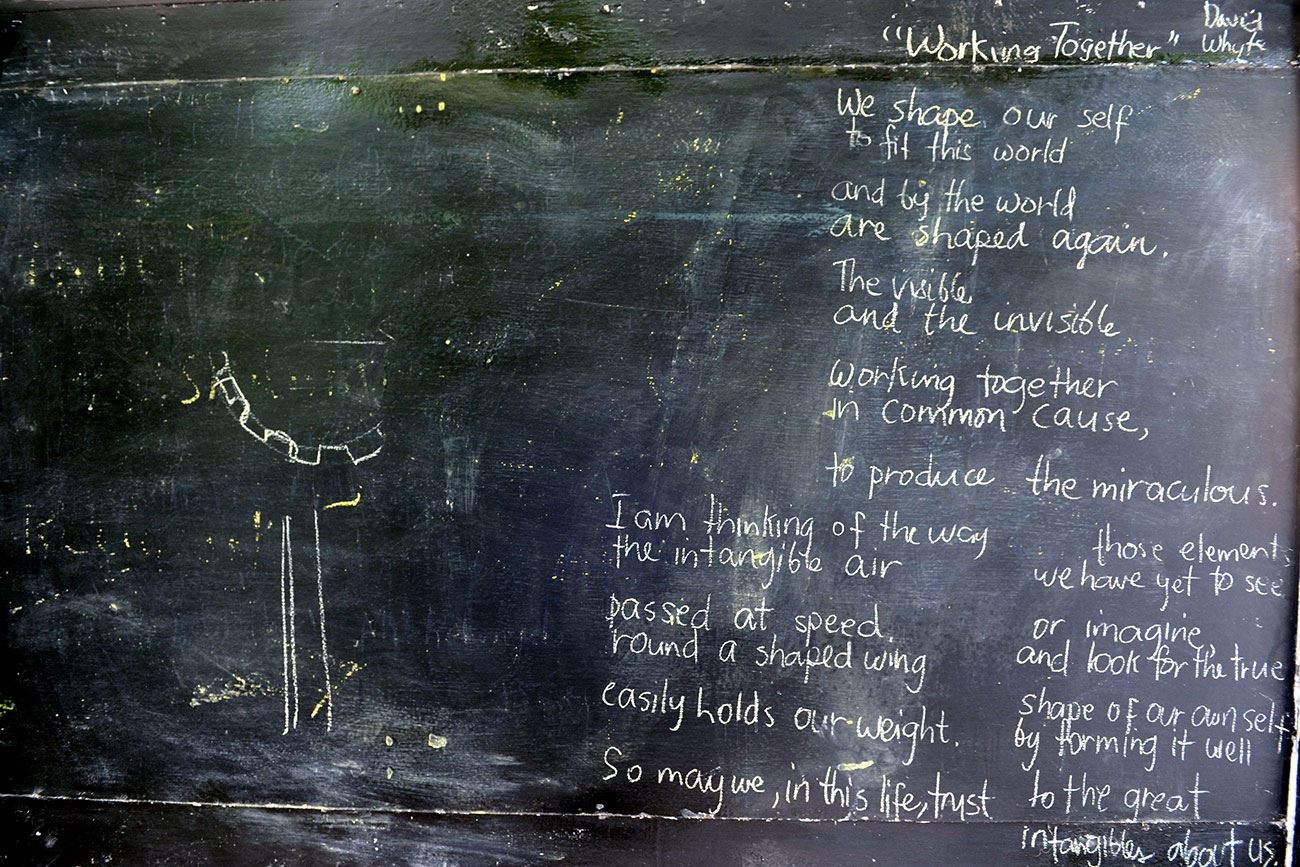 "Working Together"
David
Whyte
We shape our self
to fit this world
and by the world
are shaped again.
The visible
and the invisible
working together
in common cause,
to produce the miraculous.
I am thinking of the way
the intangible air
passed at speed
'round a shaped wing
easily holds our weight.
So may we, in this life, trust
those elements
we have yet to see
or imagine,
and look for the true
shape of our own self
by forming it well
to the great
intangibles about us.